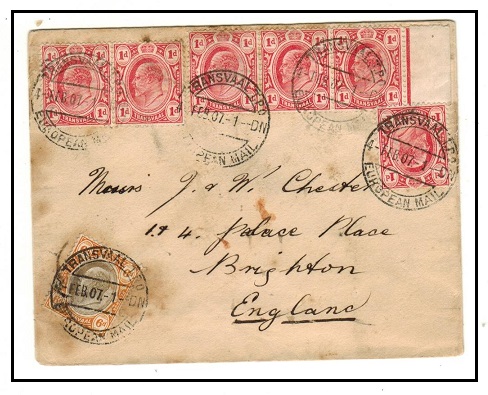 1d 1d 1d 1d 1d 1d 1d 1d 1d 1d
TRANSVAAL
FEB.07
EUROPEAN MAIL
TRANSVAAL T.P.O
FEB.07-1-DN
EUROPEAN MAIL
TRANSVAAL T.P.O
EUROPEAN MAIL
TRANSVAAL T.P.O
FEB.07
EUROPEAN MAIL
Messrs J. & W. Chester
1 & 4. Palace Place
Brighton
England
TRANSVAAL T.P.O
FEB.07-1-DN
EUROPEAN MAIL
TRANSVAAL
6d